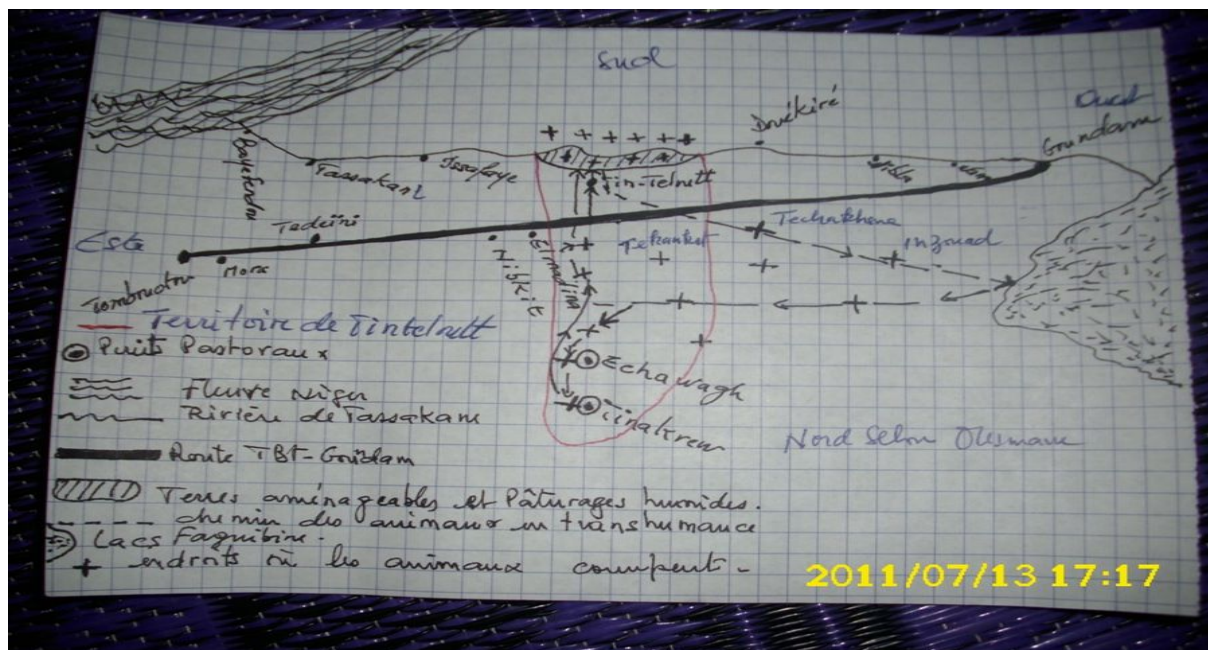 Sud
Ouest
Goundam
Douékiré
Bayefendou
Tassakane
Issafaye
Tin-Teloutt
Este
Tadeïni
Tombouctou
Hora
Nibkit
Tekantest
Inzouad
Echawagh
Tinakrem
Territoire de Tinteloutt
Puits Pastoraux
Fleuve Niger
Rivière de Tassakane
Route TBT-Goundam
Terres aménageables et Pâturages humides.
chemin des animaux en transhumance
Lacs Faguibine.
+ endroits où les animaux campent -
Nord Selon Ousmane
2011/07/13 17:17